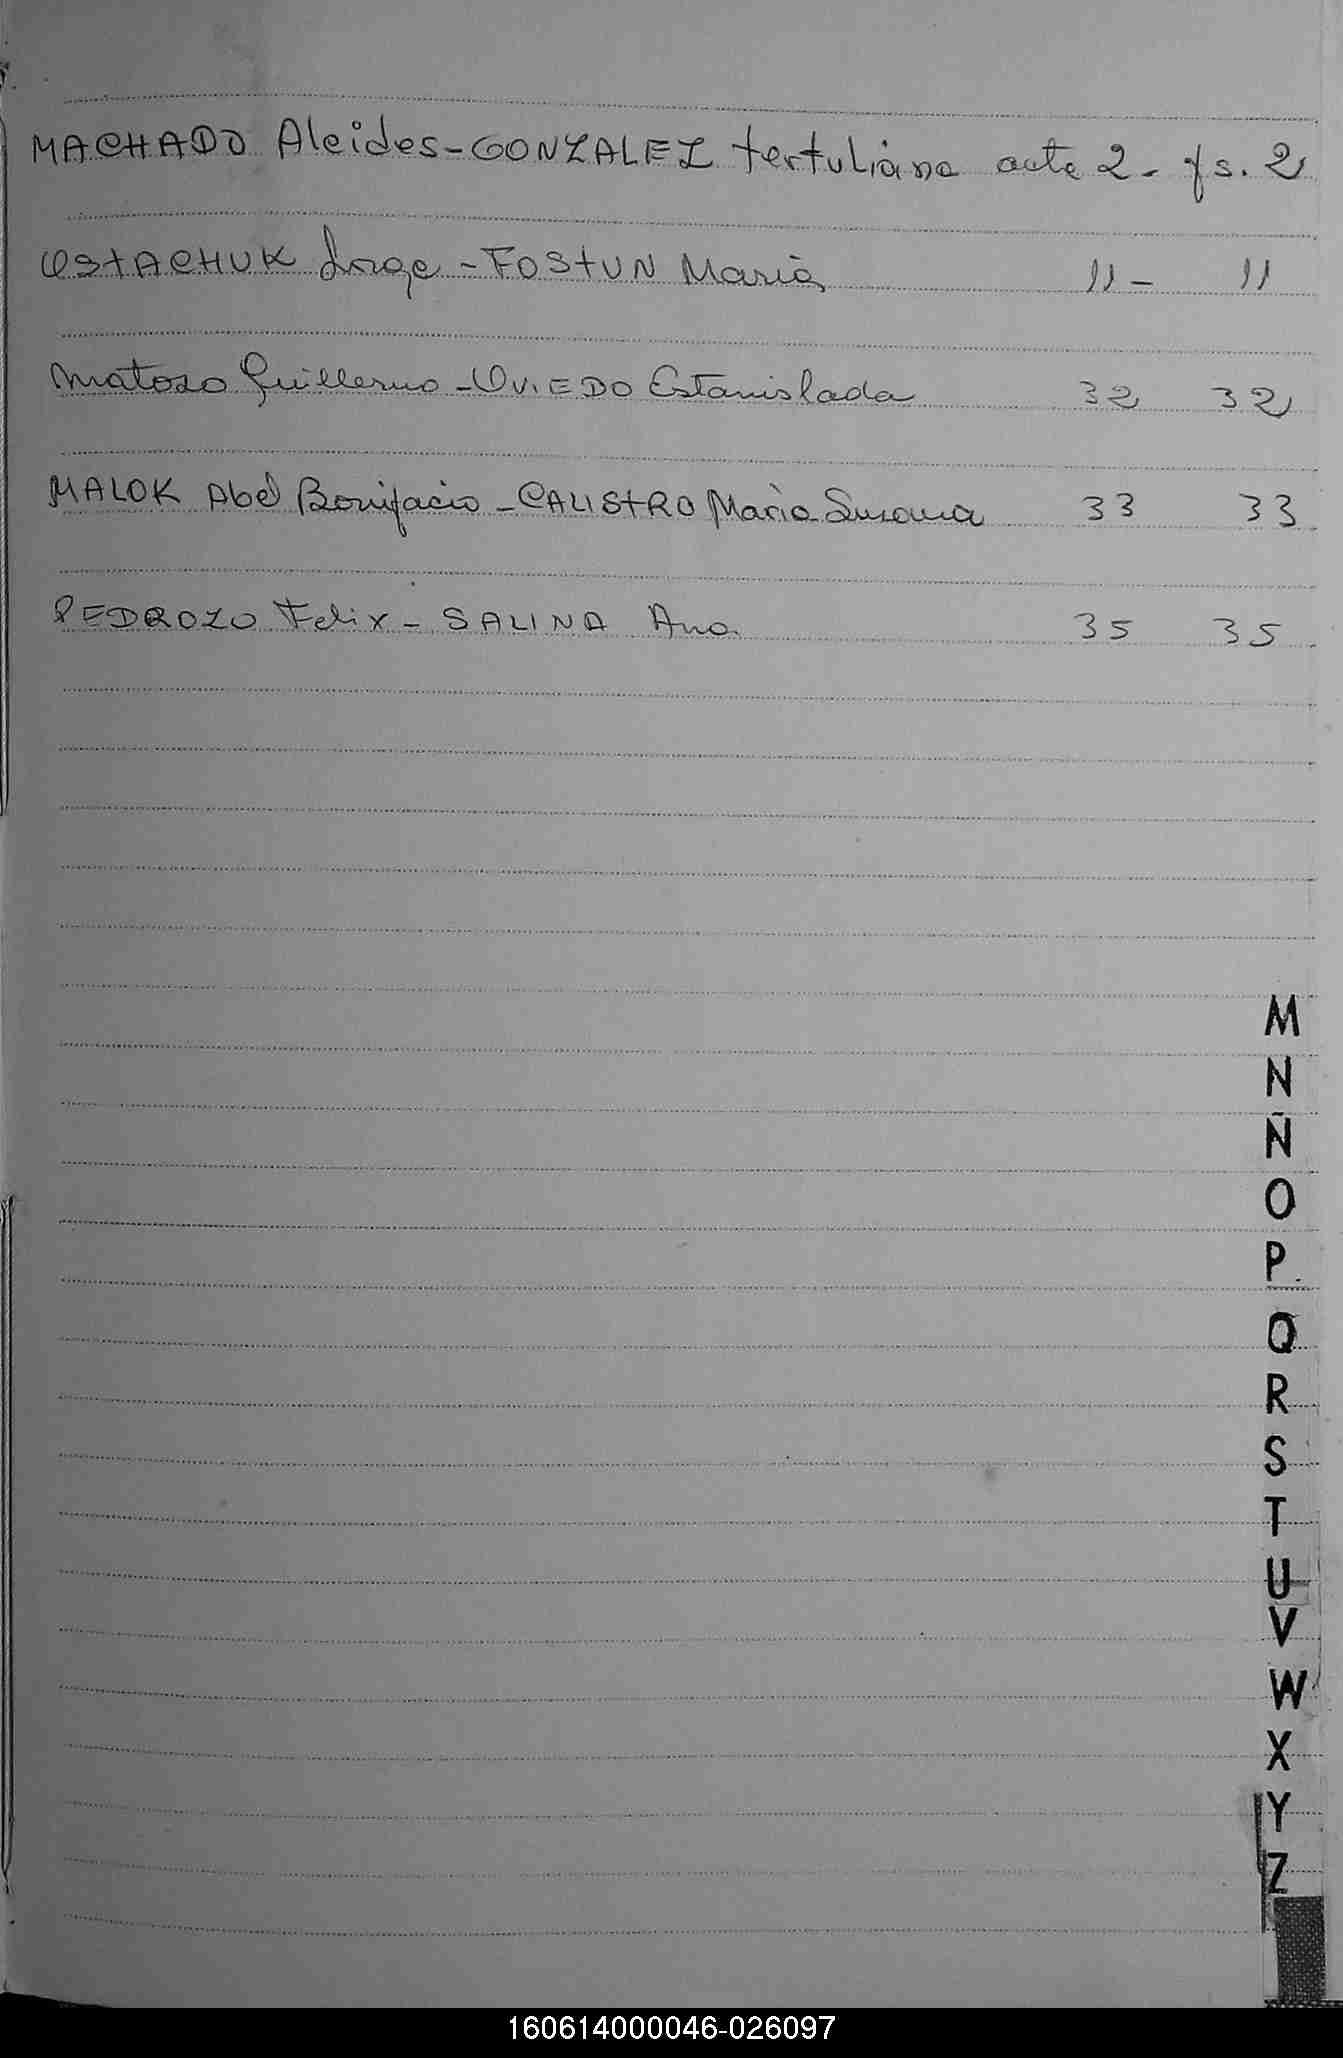 MACHADO Aleides - GONZALEZ tertuliana acta 2 - fs. 2
OSTACHUK Jorge - FOSTUN Maria 11 - 11
Matozo Guillermo - OVIEDO Estanislada 32 32
MALOK Abel Bonifacio - CALISTRO Maria Susana 33 33
PEDROZO Felix - SALINA Ana 35 35
M
N
Ñ
O
P
Q
R
S
T
U
V
W
X
Y
Z
160614000046-026097